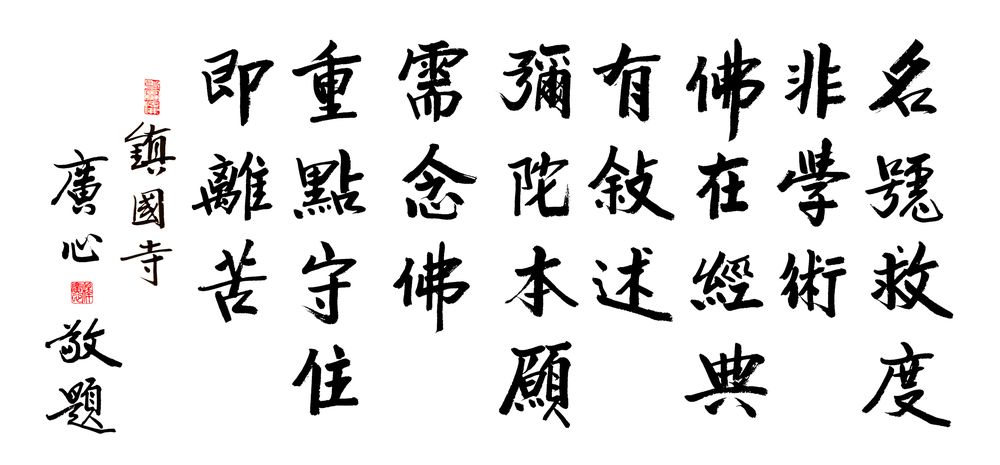 名號救度
非學術
佛在經典
有敍述
彌陀本願
需念佛
重點守住
即離苦
鎮國寺
廣心
敬題